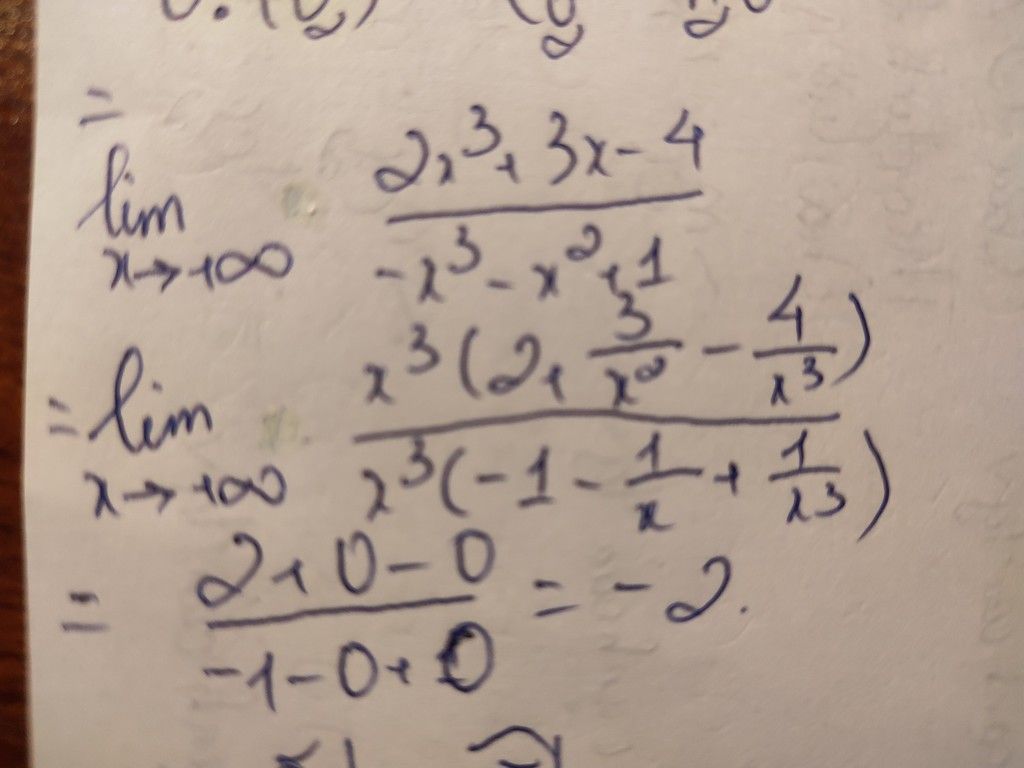 =
lim x→+∞ (2x³+3x-4)/(-x³-x²+1)
= lim x→+∞ x³(2+3/x²-4/x³)/x³(-1-1/x+1/x³)
= (2+0-0)/(-1-0+0) = -2.